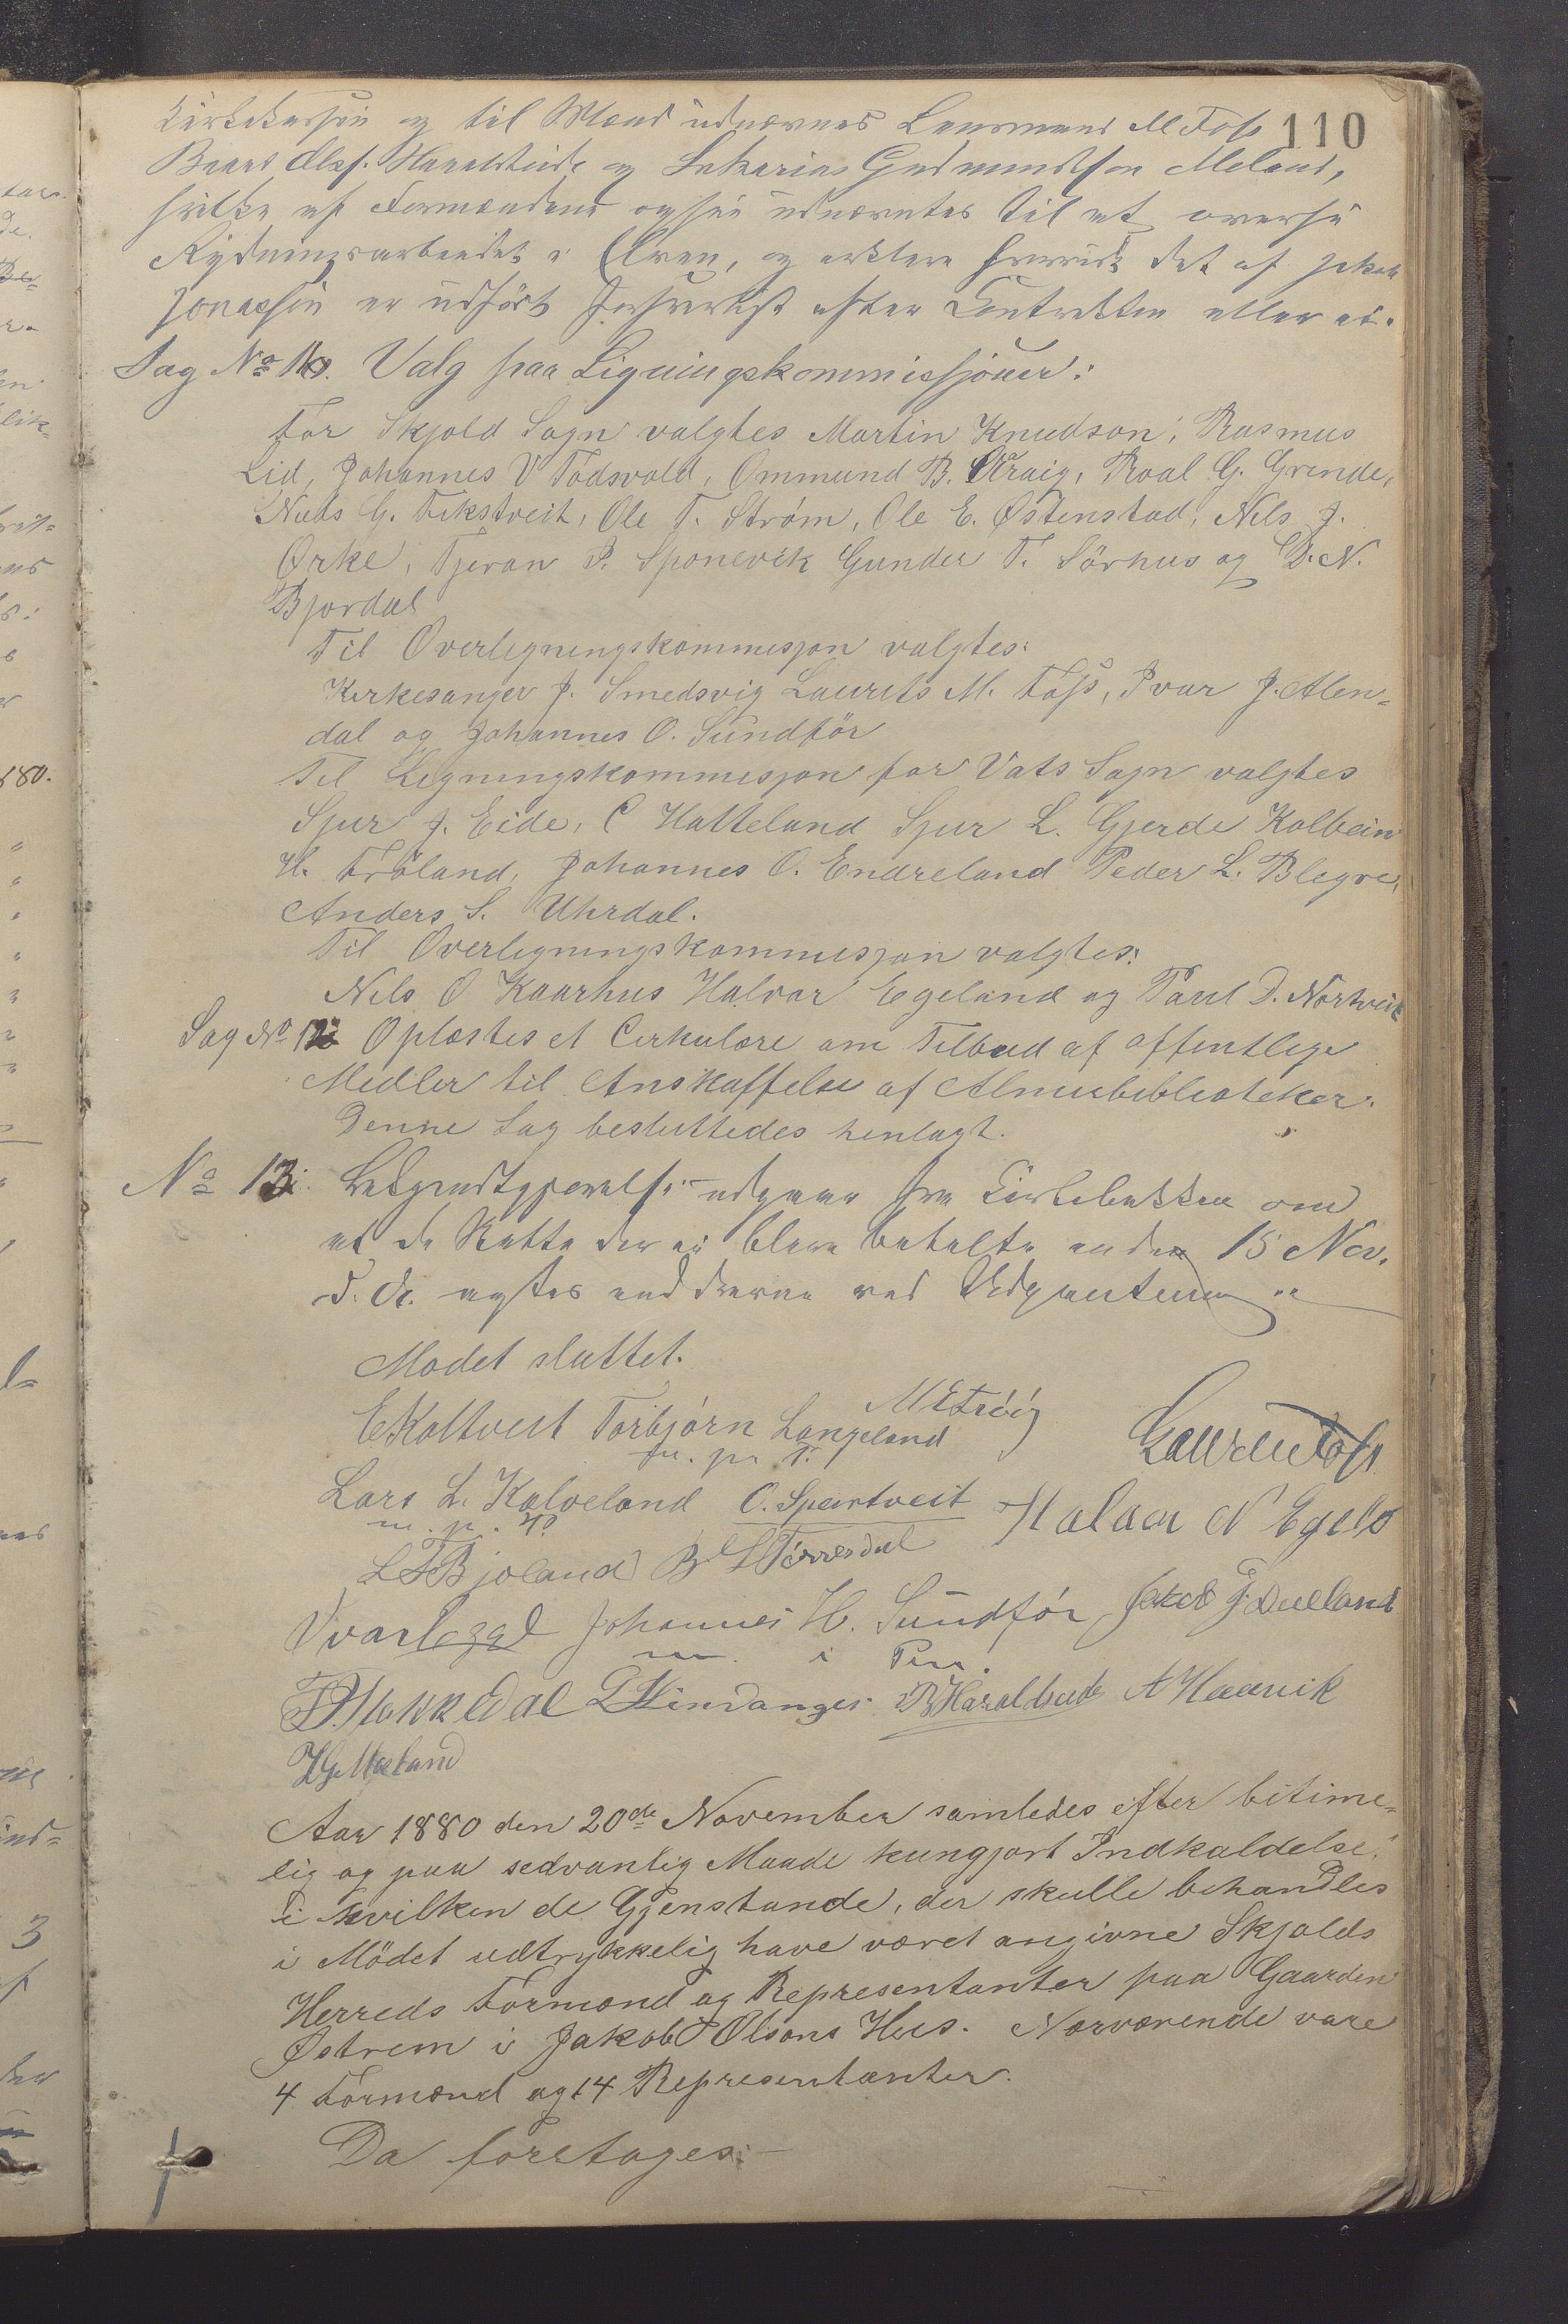 110
Kirkekassen og til Mænd udnævnes Lensmand M Foss
Baard Olsf. Haraldseide og Sakarias Gudmundsson Meland,
hvilke af Formændene ogsaa udnævntes til at overse
Rydningsarbeidet i Elven, og erklære hvorvidt det af Jakob
Jonassen er udført forsvarligt efter Contrakten eller ei.
Sag No 10. Valg paa Ligningskommissjoner:
For Skjold Sogn valgtes Martin Knudson, Rasmus
Lid, Johannes V Todsvold, Ommund B. Kraig, Roal G. Grinde,
Niels G. Fikstveit, Ole T. Strøm, Ole E. Østenstad, Nils J.
Ørke, Tjeran P. Sponevik Gunder T. Sörhus og D. N.
Bjordal
Til Overligningskommisjon valgtes:
Kirkesanger J. Smedsvig Laurits M. Foss, Ivar J. Alen-
dal og Johannes O. Sundför
Til Ligningskommisjon for Vats Sogn valgtes
Sjur J. Eide, C Hatteland Sjur L. Gjerde Kolbein
H. Fröland, Johannes O. Endreland Peder L. Blegre,
Anders S. Uhrdal.
Til Overligningskommisjon valgtes:
Nils O Kaarhus Halvor Egeland og Paul D. Nortveit
Sag No 12 Oplæstes et Cirkulære om Tilbud af offentlige
Midler til Anskaffelse af Almuebiblioteker.
Denne Sag besluttedes henlagt.
No 13. Bekjendtgjørelse udgaaer fra Kirkebakken om
at de Skatte der ei blive betalte inden 15 Nov.
d. A. agtes inddrevne ved Udpantning
Mødet sluttet.
M Etróig
E Koltveit Torbjörn Langeland
m. p. P.
Laurits Foss
Lars L. Kalveland O. Spartveit
m. p. P.
Halvor N Egeld
L T Bjoland B L Törresdal
Ivar Johannes H. Sundför Jakob J. Aueland
m. i Pen.
Stokkedal L Kindanger B Haraldseide A Haavik
Z G Mæland
Aar 1880 den 20de November samledes efter bitime-
lig og paa sedvanlig Maade kungjort Indkaldelse,
i hvilken de Gjenstande, der skulle behandles
i Mödet udtrykkelig have været angivne Skjolds
Herreds Formænd og Representanter paa Gaarden
Østrem i Jakob Olsons Hus. Nærværende vare
4 Formænd og 14 Representanter.
Da foretages:-